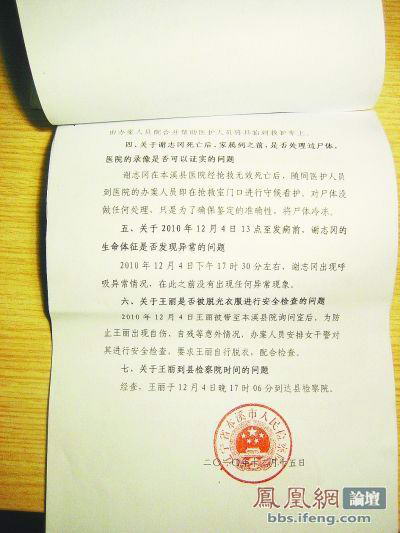 由办案人员配合并帮助医护人员将其抬到救护车上。
四、关于谢志冈死亡后，家属到之前，是否处理过尸体，
医院的录像是否可以证实的问题
谢志冈在本溪县医院经抢救无效死亡后，随同医护人员
到医院的办案人员即在抢救室门口进行守候看护，对尸体没
做任何处理，只是为了确保鉴定的准确性，将尸体冷冻。
五、关于 2010 年 12 月 4 日 13 点至发病前，谢志冈的
生命体征是否发现异常的问题
2010 年 12 月 4 日下午 17 时 30 分左右，谢志冈出现呼
吸异常情况，在此之前没有出现任何异常现象。
六、关于王丽是否被脱光衣服进行安全检查的问题
2010 年 12 月 4 日王丽被带至本溪县院询问室后，为防
止王丽出现自伤、自残等意外情况，办案人员安排女干警对
其进行安全检查，要求王丽自行脱衣，配合检查。
七、关于王丽到县检察院时间的问题
经查，王丽于 12 月 4 日晚 17 时 06 分到达县检察院。
辽宁省本溪市人民检察院
二〇一〇年十二月十五日
鳳凰網 論壇
bbs.ifeng.com